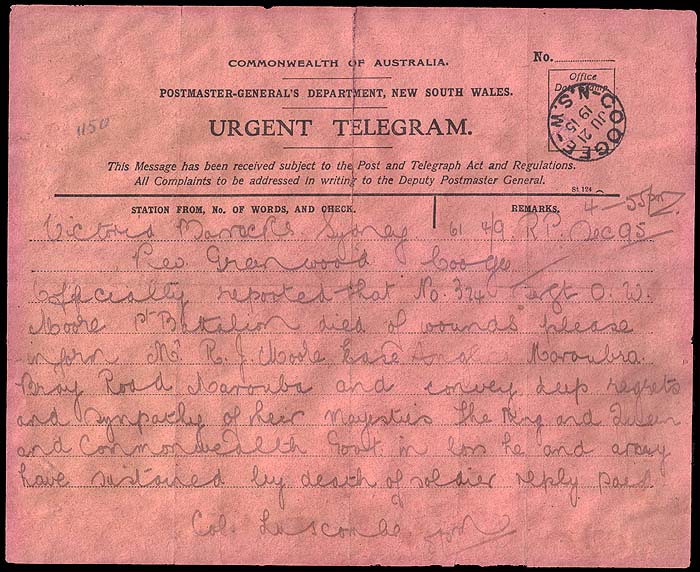 COMMONWEALTH OF AUSTRALIA.
No.
POSTMASTER-GENERAL'S DEPARTMENT, NEW SOUTH WALES.
Office
COOGEE N.S.W.
JU 21
19 15
1150
URGENT TELEGRAM.
This Message has been received subject to the Post and Telegraph Act and Regulations.
All Complaints to be addressed in writing to the Deputy Postmaster General.
St.124
STATION FROM, No. OF WORDS, AND CHECK.
REMARKS.
4-55pm
Victoria Barracks Sydney 61 4/9 R.P. Sec 95
Rev Greenwood Coogee
Officially reported that No. 324 Sergt O. W.
Moore 1st Battalion died of wounds please
inform Mr R. J. Moore Maroubra
Bray Road Marouba and convey deep regrets
and sympathy of their Majesties the King and Queen
and Commonwealth Govt. in loss he and army
have sustained by death of soldier reply paid
Col. Luscombe